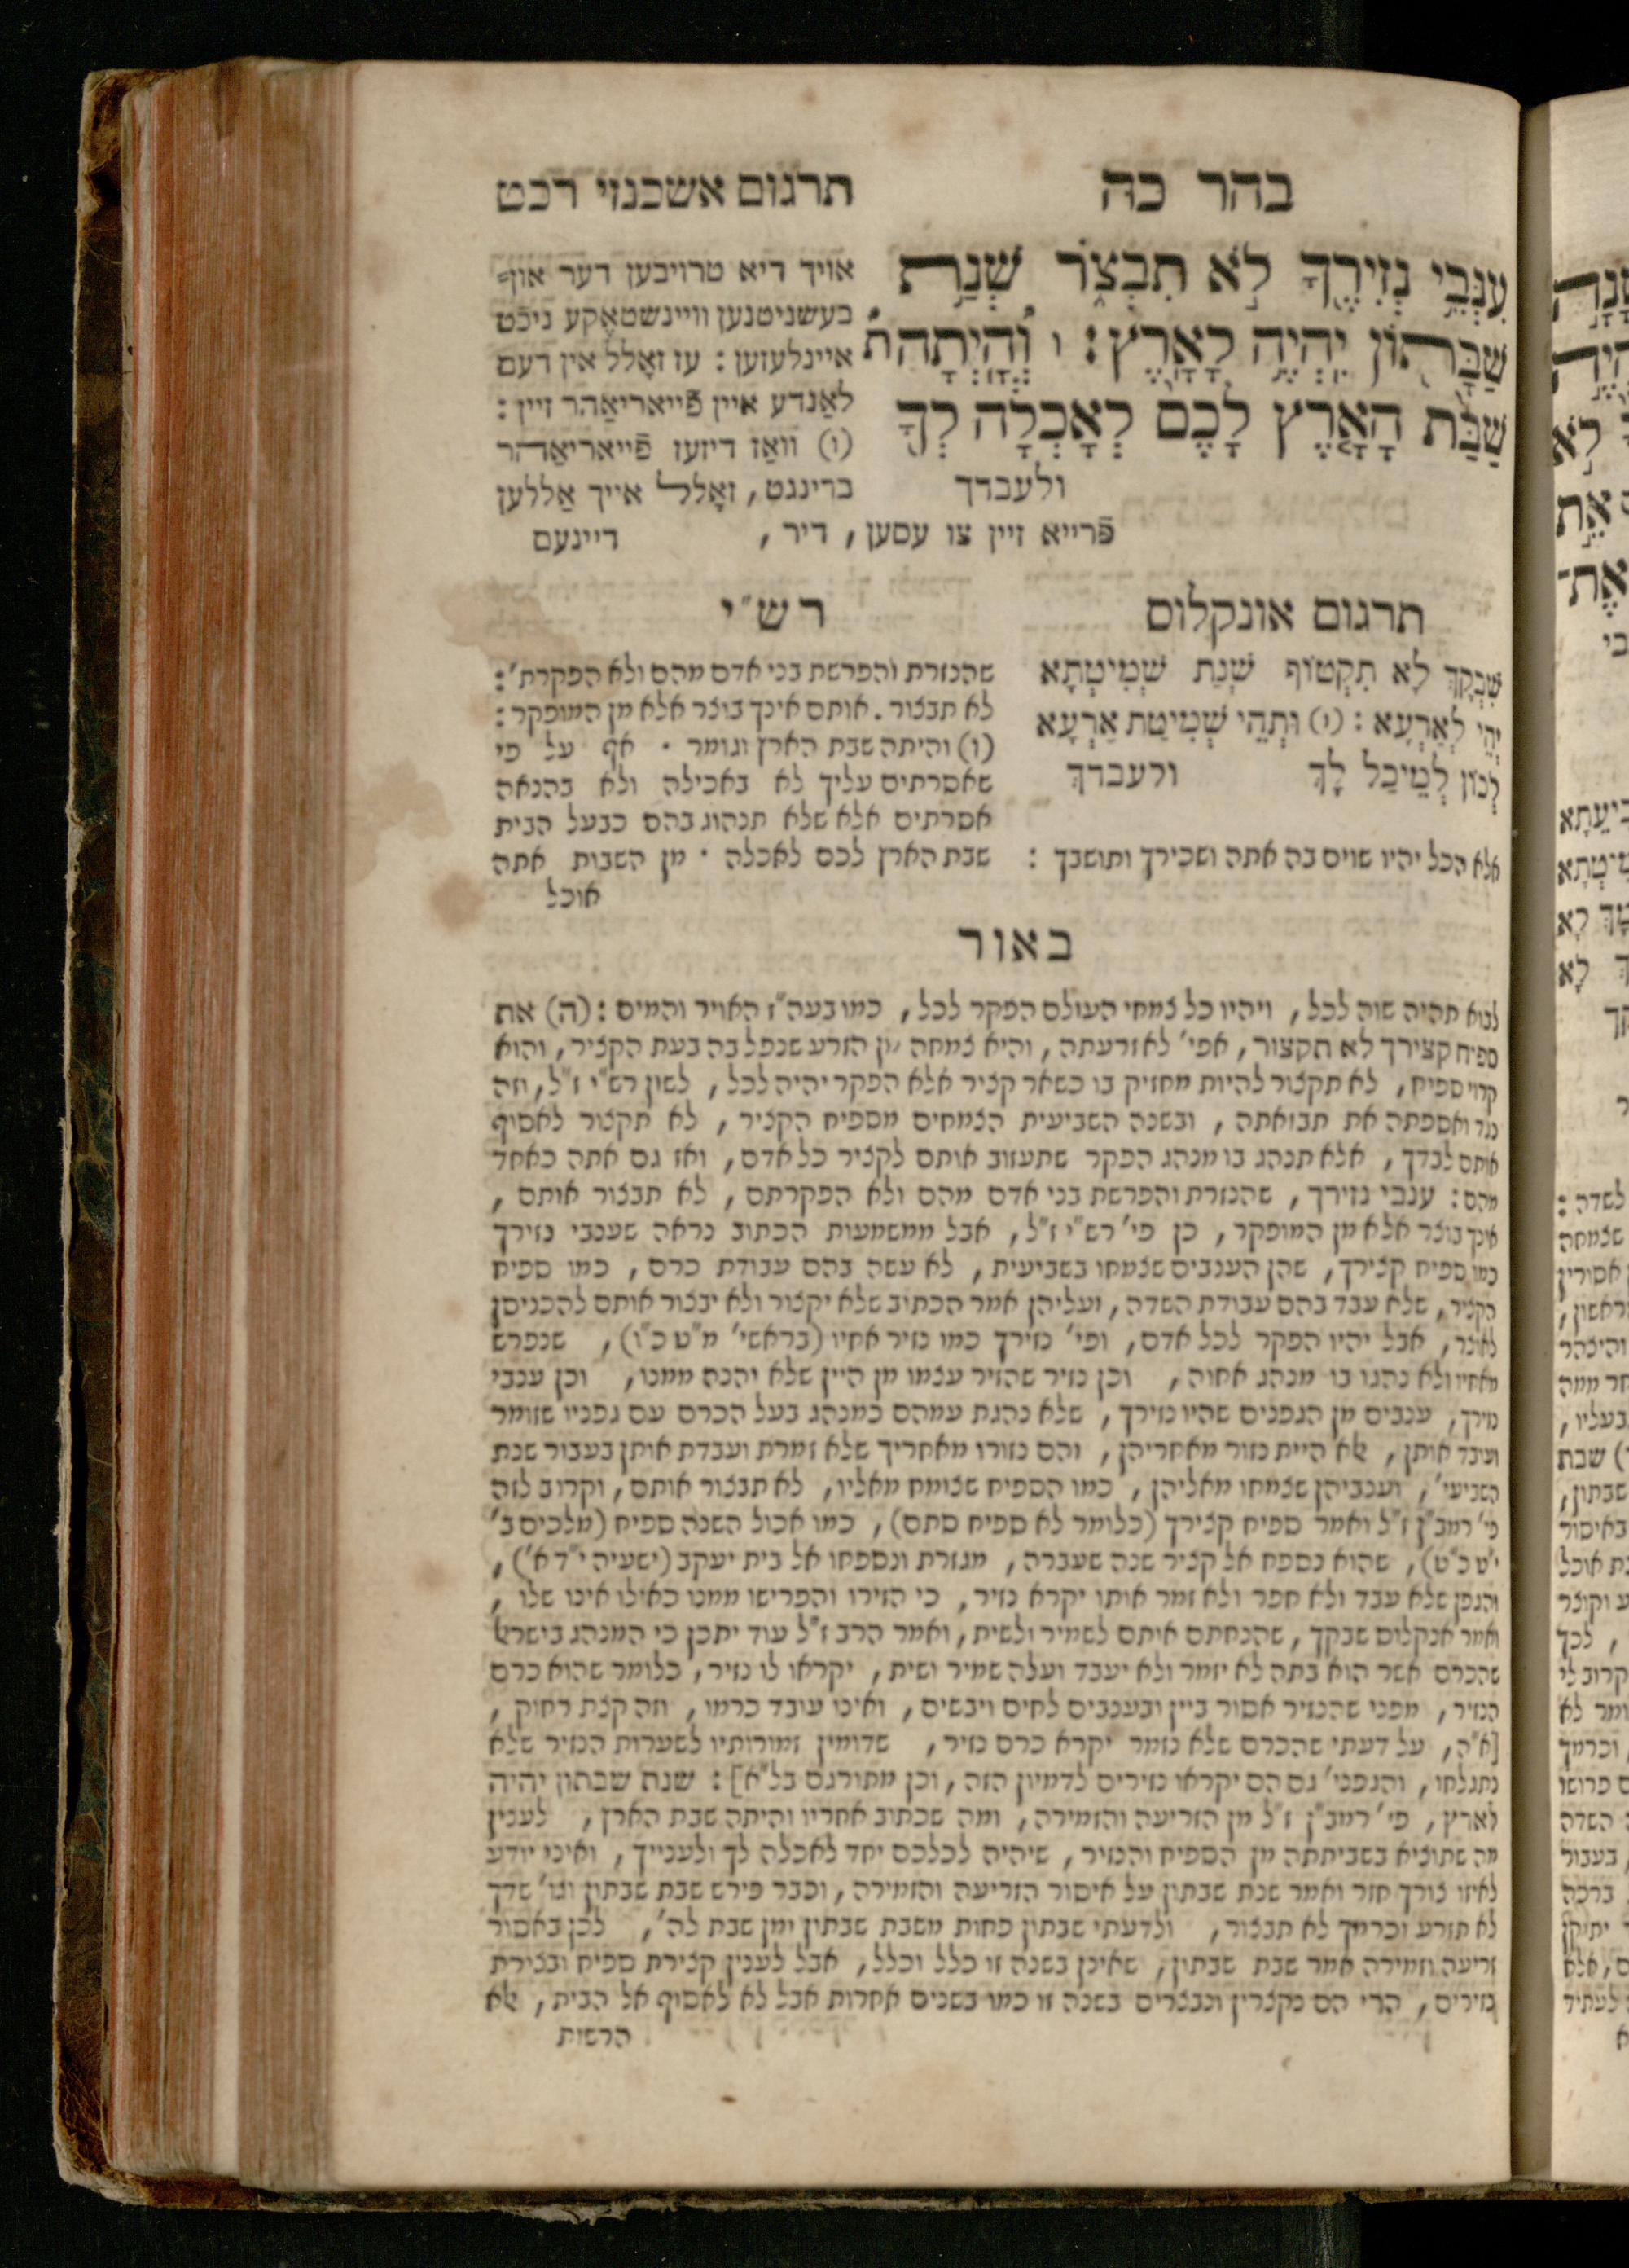 בהר כה
תרגום אשכנזי רכט
עִנְּבֵי נְזִירֶךָ לֹא תִבְצֹר שְׁנַת
שַׁבָּתוֹן יִהְיֶה לָאָרֶץ: ו וְהָיְתָה
שַׁבַּת הָאָרֶץ לָכֶם לְאָכְלָה לְךָ
ולעבדך
אויך דיא טרויבען דער און־
בעשניטנען וויינשטאָקע ניכֿט
איינלעזען: עז זאָלל אין דעם
לאַנדע איין פֿייאריאַהר זיין:
(ו) וואַז דיזעז פֿייאריאַהר
ברינגט, זאָלל אייך אַללען
פֿרייא זיין צו עסען, דיר, דיינעם
תרגום אונקלוס
שִׁבְקָךְ לָא תִקְטוֹף שְׁנַת שְׁמִיטְתָא
יְהֵי לְאַרְעָא: (ו) וּתְהֵי שְׁמִיטַת אַרְעָא
לְכוֹן לְמֵיכַל לָךְ ולעבדך
רש"י
שהנזרת והפרשת בני אדם מהם ולא הפקרת':
לא תבצור. אותם אינך בוצר אלא מן המופקר:
(ו) והיתה שבת הארץ וגומר. אף על פי
שאסרתים עליך לא באכילה ולא בהנאה
אסרתים אלא שלא תנהוג בהם כבעל הבית
אלא הכל יהיו שוים בה אתה ושכירך ותושבך: שבת הארץ לכם לאכלה. מן השבות אתה
אוכל
באור
לבוא תהיה שוה לכל, ויהיו כל צמחי העולם הפקר לכל, כמו בעה"ז האויר והמים: (ה) את
ספיח קצירך לא תקצור, אפי' לא זרעתה, והיא צמחה מן הזרע שנפל בה בעת הקציר, והוא
קרוי ספיח, לא תקצור להיות מחזיק בו כשאר קציר אלא הפקר יהיה לכל, לשון רש"י ז"ל, וזה
נגד ואספתה את תבואתה, ובשנה השביעית הצמחים מספיח הקציר, לא תקצור לאסוף
אותם לבדך, אלא תנהג בו מנהג הפקר שתעזוב אותם לקציר כל אדם, ואז גם אתה כאחד
מהם: ענבי נזירך, שהנזרת והפרשת בני אדם מהם ולא הפקרתם, לא תבצור אותם,
אינך בוצר אלא מן המופקר, כן פי' רש"י ז"ל, אבל ממשמעות הכתוב נראה שענבי נזירך
כמו ספיח קצירך, שהן הענבים שצמחו בשביעית, לא עשה בהם עבודת כרם, כמו ספיח
הקציר, שלא עבד בהם עבודת השדה, ועליהן אמר הכתוב שלא יקצור ולא יבצור אותם להכניסן
לאוצר, אבל יהיו הפקר לכל אדם, ופי' נזירך כמו נזיר אחיו (בראשי' מ"ט כ"ו), שנפרש
מאחיו ולא נהגו בו מנהג אחוה, וכן נזיר שהזיר עצמו מן היין שלא יהנה ממנו, וכן ענבי
נזירך, ענבים מן הגפנים שהיו נזירך, שלא נהגת עמהם כמנהג בעל הכרם עם גפניו שזומר
ועובד אותן, אלא היית נזור מאחריהן, והם נזורו מאחריך שלא זמרת ועבדת אותן בעבור שנת
השביעי', וענביהן שצמחו מאליהן, כמו הספיח שצומח מאליו, לא תבצור אותם, וקרוב לזה
פי' רמב"ן ז"ל ואמר ספיח קצירך (כלומר לא ספיח סתם), כמו אכול השנה ספיח (מלכים ב'
י"ט כ"ט), שהוא נספח אל קציר שנה שעברה, מגזרת ונספחו אל בית יעקב (ישעיה י"ד א'),
והגפן שלא עבד ולא חפר ולא זמר אותו יקרא נזיר, כי הזירו והפרישו ממנו כאילו אינו שלו,
ואמר אנקלוס שבקך, שהנחתם אותם לשמיר ולשית, ואמר הרב ז"ל עוד יתכן כי המנהג בישראל
שהכרם אשר הוא בתה לא יזמר ולא יעבד ועלה שמיר ושית, יקראו לו נזיר, כלומר שהוא כרם
הנזיר, מפני שהנזיר אסור ביין ובענבים לחים ויבשים, ואינו עובד כרמו, וזה קצת רחוק,
[א"ה, על דעתי שהכרם שלא נזמר יקרא כרם נזיר, שדומין זמורותיו לשערות הנזיר שלא
נתגלחו, והגפני' גם הם יקראו נזירים לדמיון הזה, וכן מתורגם בל"א]: שנת שבתון יהיה
לארץ, פי' רמב"ן ז"ל מן הזריעה והזמירה, ומה שכתוב אחריו והיתה שבת הארץ, לענין
מה שתוציא בשביתתה מן הספיח והנזיר, שיהיה לכלכם יחד לאכלה לך ולענייך, ואיני יודע
לאיזו צורך חזר ואמר שנת שבתון על איסור הזריעה והזמירה, וכבר פירש שבת שבתון וגו' שדך
לא תזרע וכרמך לא תבצור, ולדעתי שבתון פחות משבת שבתון ומן שבת לה', לכן באסור
זריעה וזמירה אמר שבת שבתון, שאינן בשנה זו כלל וכלל, אבל לענין קצירת ספיח ובצירת
נזירים, הרי הם נקצרין ונבצרים בשנה זו כמו בשנים אחרות אבל לא לאסוף אל הבית, אלא
הרשות